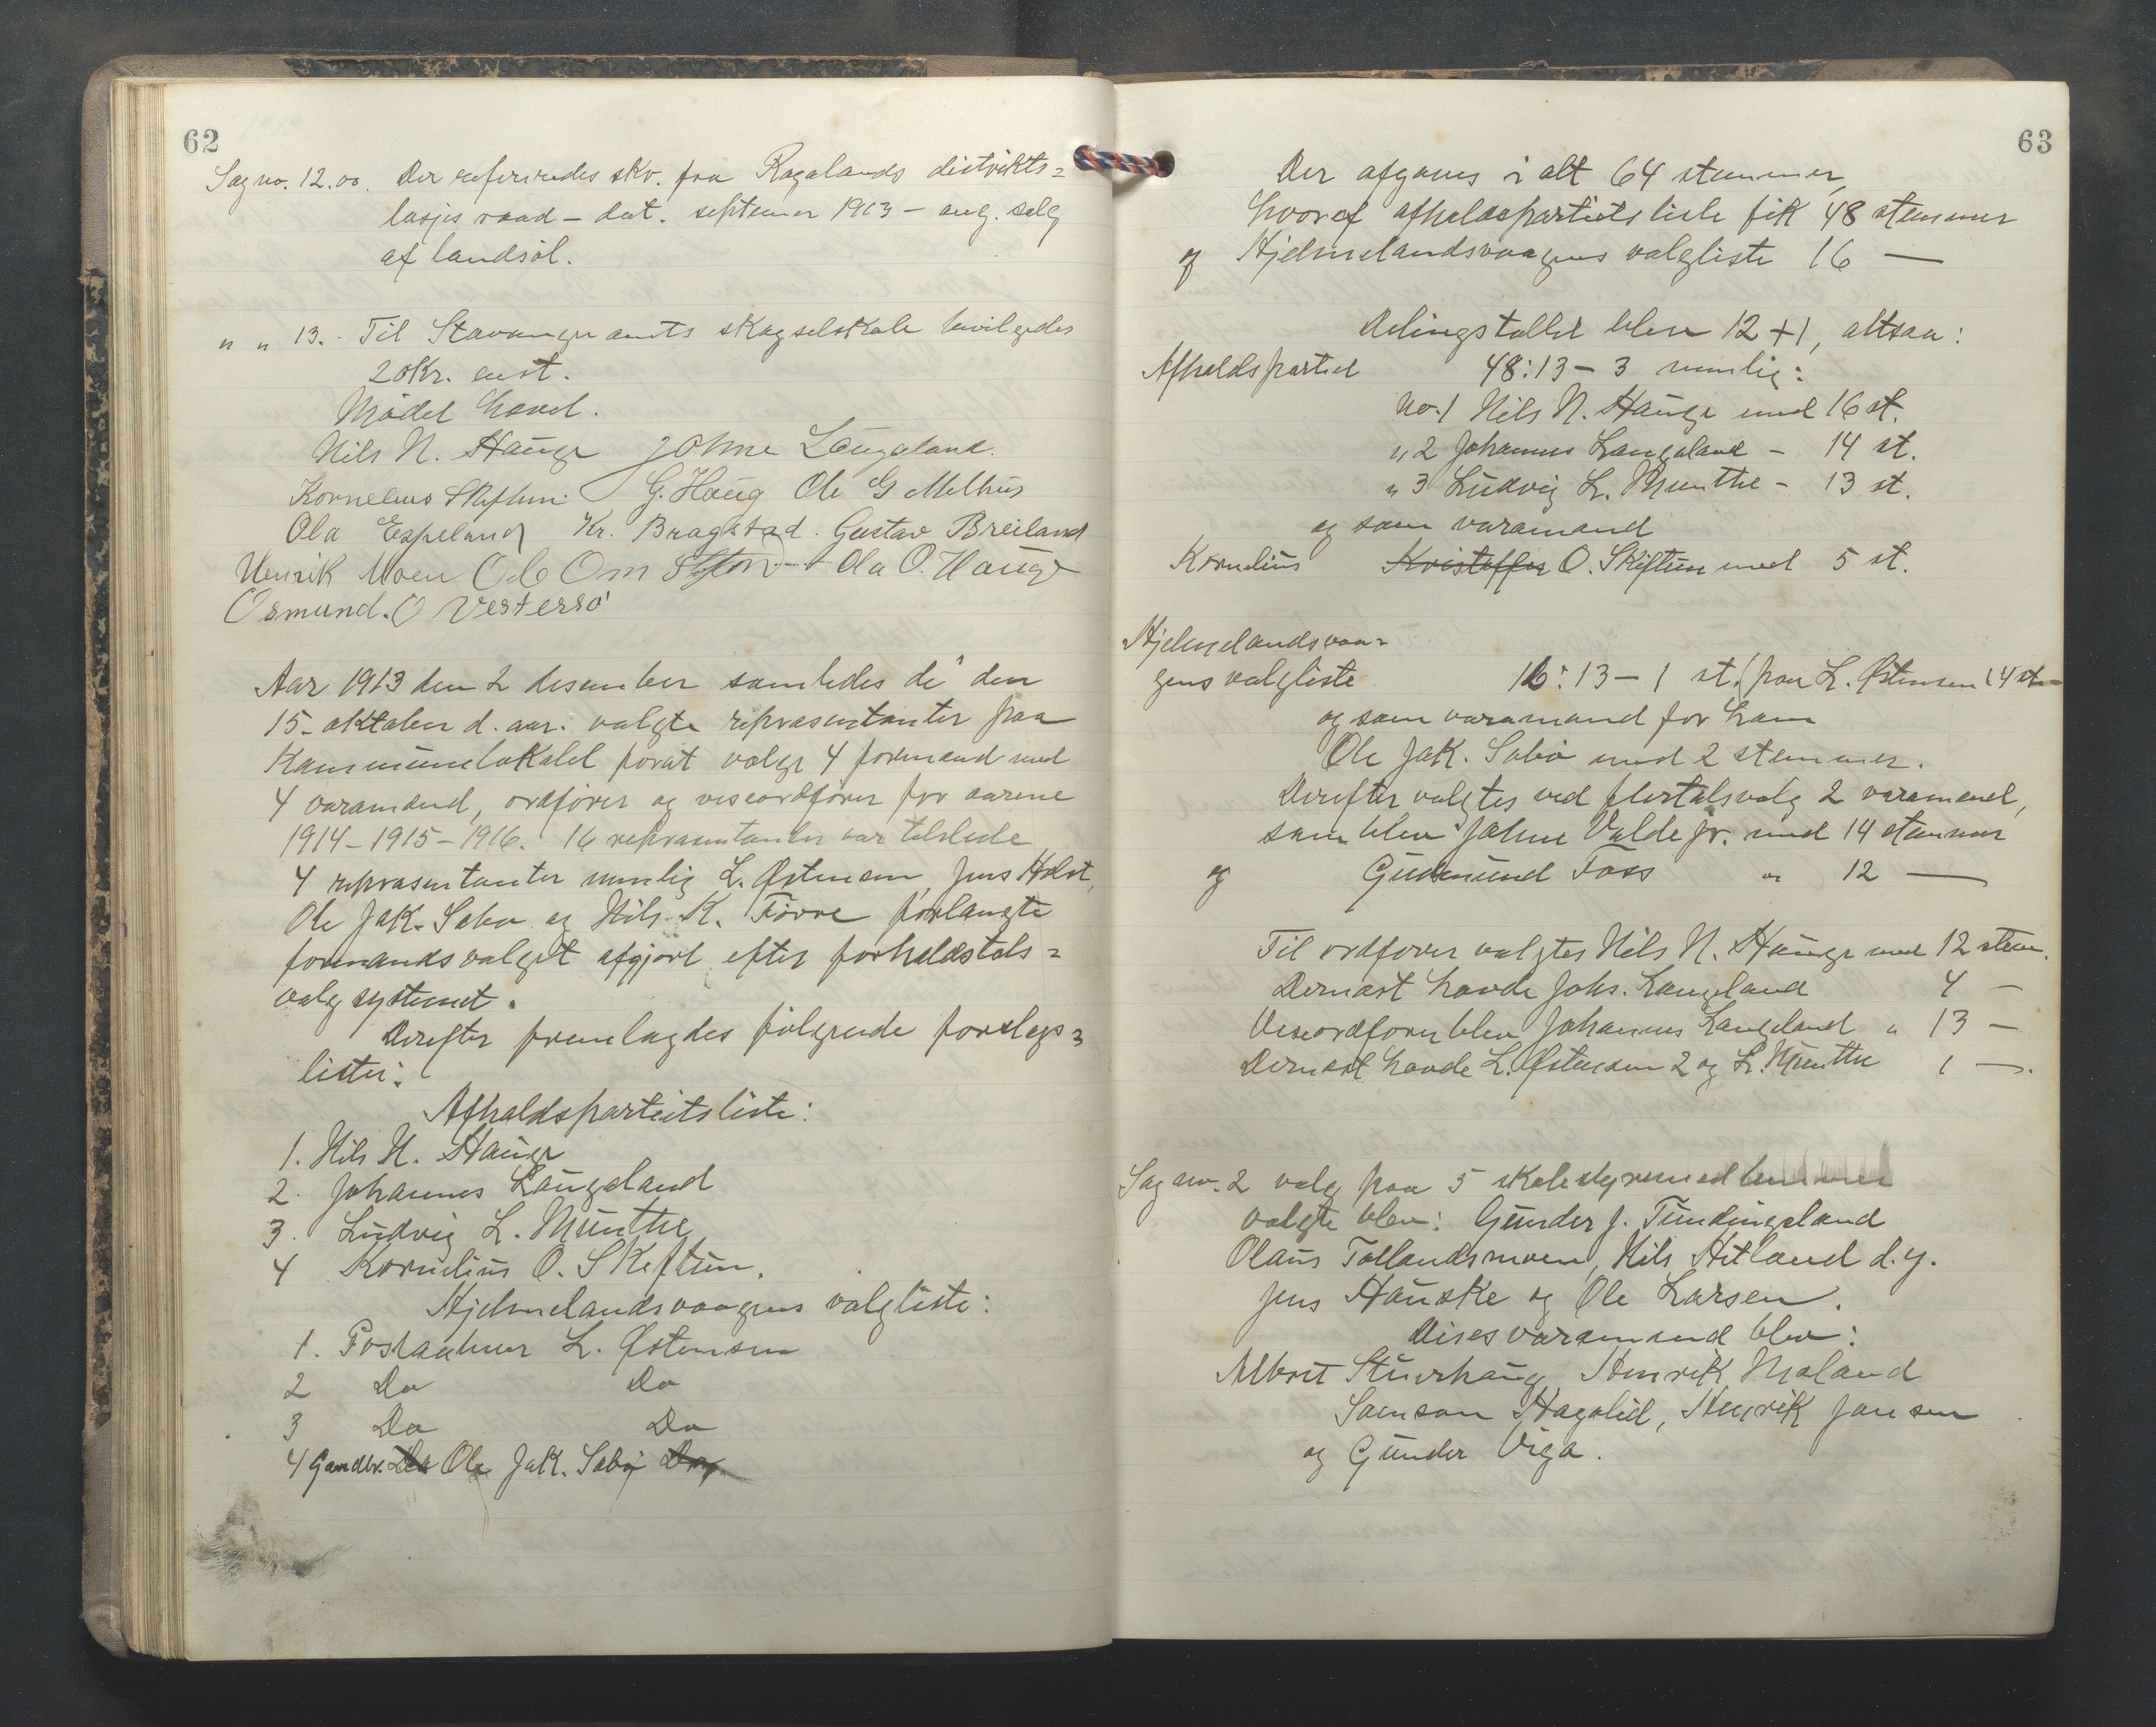 62
Sag no. 12.00. Der refereredes skr. fra Rogalands distrikts=
losjes raad – dat. septemer 1913 – ang. salg
af landsøl.
" " 13. Til Stavanger amts skogselskab bevilgedes
20Kr. enst.
Mødet hævet.
Nils N. Hauge Johne Laugaland.
Kornelius Skiftun. G. Haug Ole G Melhus
Ola Espeland Kr. Bragstad. Gustav Breiland
Henrik Moen Ole Om Ola O. Hauge
Osmund. O Vestersø
Aar 1913 den 2 desember samledes de den
15. oktober d. aar. valgte repræsentanter paa
Kommunelokalet forat vælge 4 formænd med
4 varamænd, ordfører og viseordfører for aarene
1914–1915–1916. 16 repræsentanter var tilstede
4 repræsentanter nemlig L. Østensen, Jens Holst,
Ole Jak. Sabø og Nils K. Førre forlangte
formandsvalget afgjort efter forholdstals=
valgsystemet.
Derefter fremlagdes følgende forslags=
lister:
Afholdspartietsliste:
1. Nils N. Hauge
2. Johannes Laugaland
3. Ludvig L. Munthe
4 Kornelius O. Skiftun.
Hjelmelandsvaagens valgliste:
1. Postaabner L. Østensen
2 Do Do
3 Do Do
4 Gardbr. Do Ole Jak. Sabø Do
63
Der afgaves i alt 64 stemmer,
hvoraf afholdspartietsliste fik 48 stemmer
og Hjelmelandsvaagens valgliste 16 —
Delingstallet blev 12+1, altsaa:
Afholdspartiet 48:13 – 3 nemlig:
No. 1 Nils N. Hauge med 16 st.
" 2 Johannes Laugaland – 14 st.
" 3 Ludvig L. Munthe – 13 st.
og som varamand
Kornelius Kristoffer O. Skiftun med 5 st.
Hjelmelandsvaa=
gens valgliste 16:13 – 1 st. (paa L. Østensen 14 st.
og som varamand for ham
Ole Jak. Sabø med 2 stemmer.
Derefter valgtes ved flertalsvalg 2 varamænd,
som blev Johne Valde jr. med 14 stemmer
og Gudmund Foss " 12 —
Til ordfører valgtes Nils N. Hauge med 12 stem.
Dernæst havde Johs. Laugaland 4 –
Viseordfører blev Johannes Laugaland " 13 –
Dernæst havde L. Østensen 2 og L. Munthe 1 –.
Sag no. 2 valg paa 5 skolestyremedlemmer
valgte blev: Gunder J. Tundingsland
Olaus Tøtlandsmoen, Nils Hetland d.y.
Jens Hauske og Ole Larsen.
Disses varamænd blev:
Albret Stuvhaug Henrik Møland
Samson Hagalid, Henrik Jansen
og Gunder Viga.